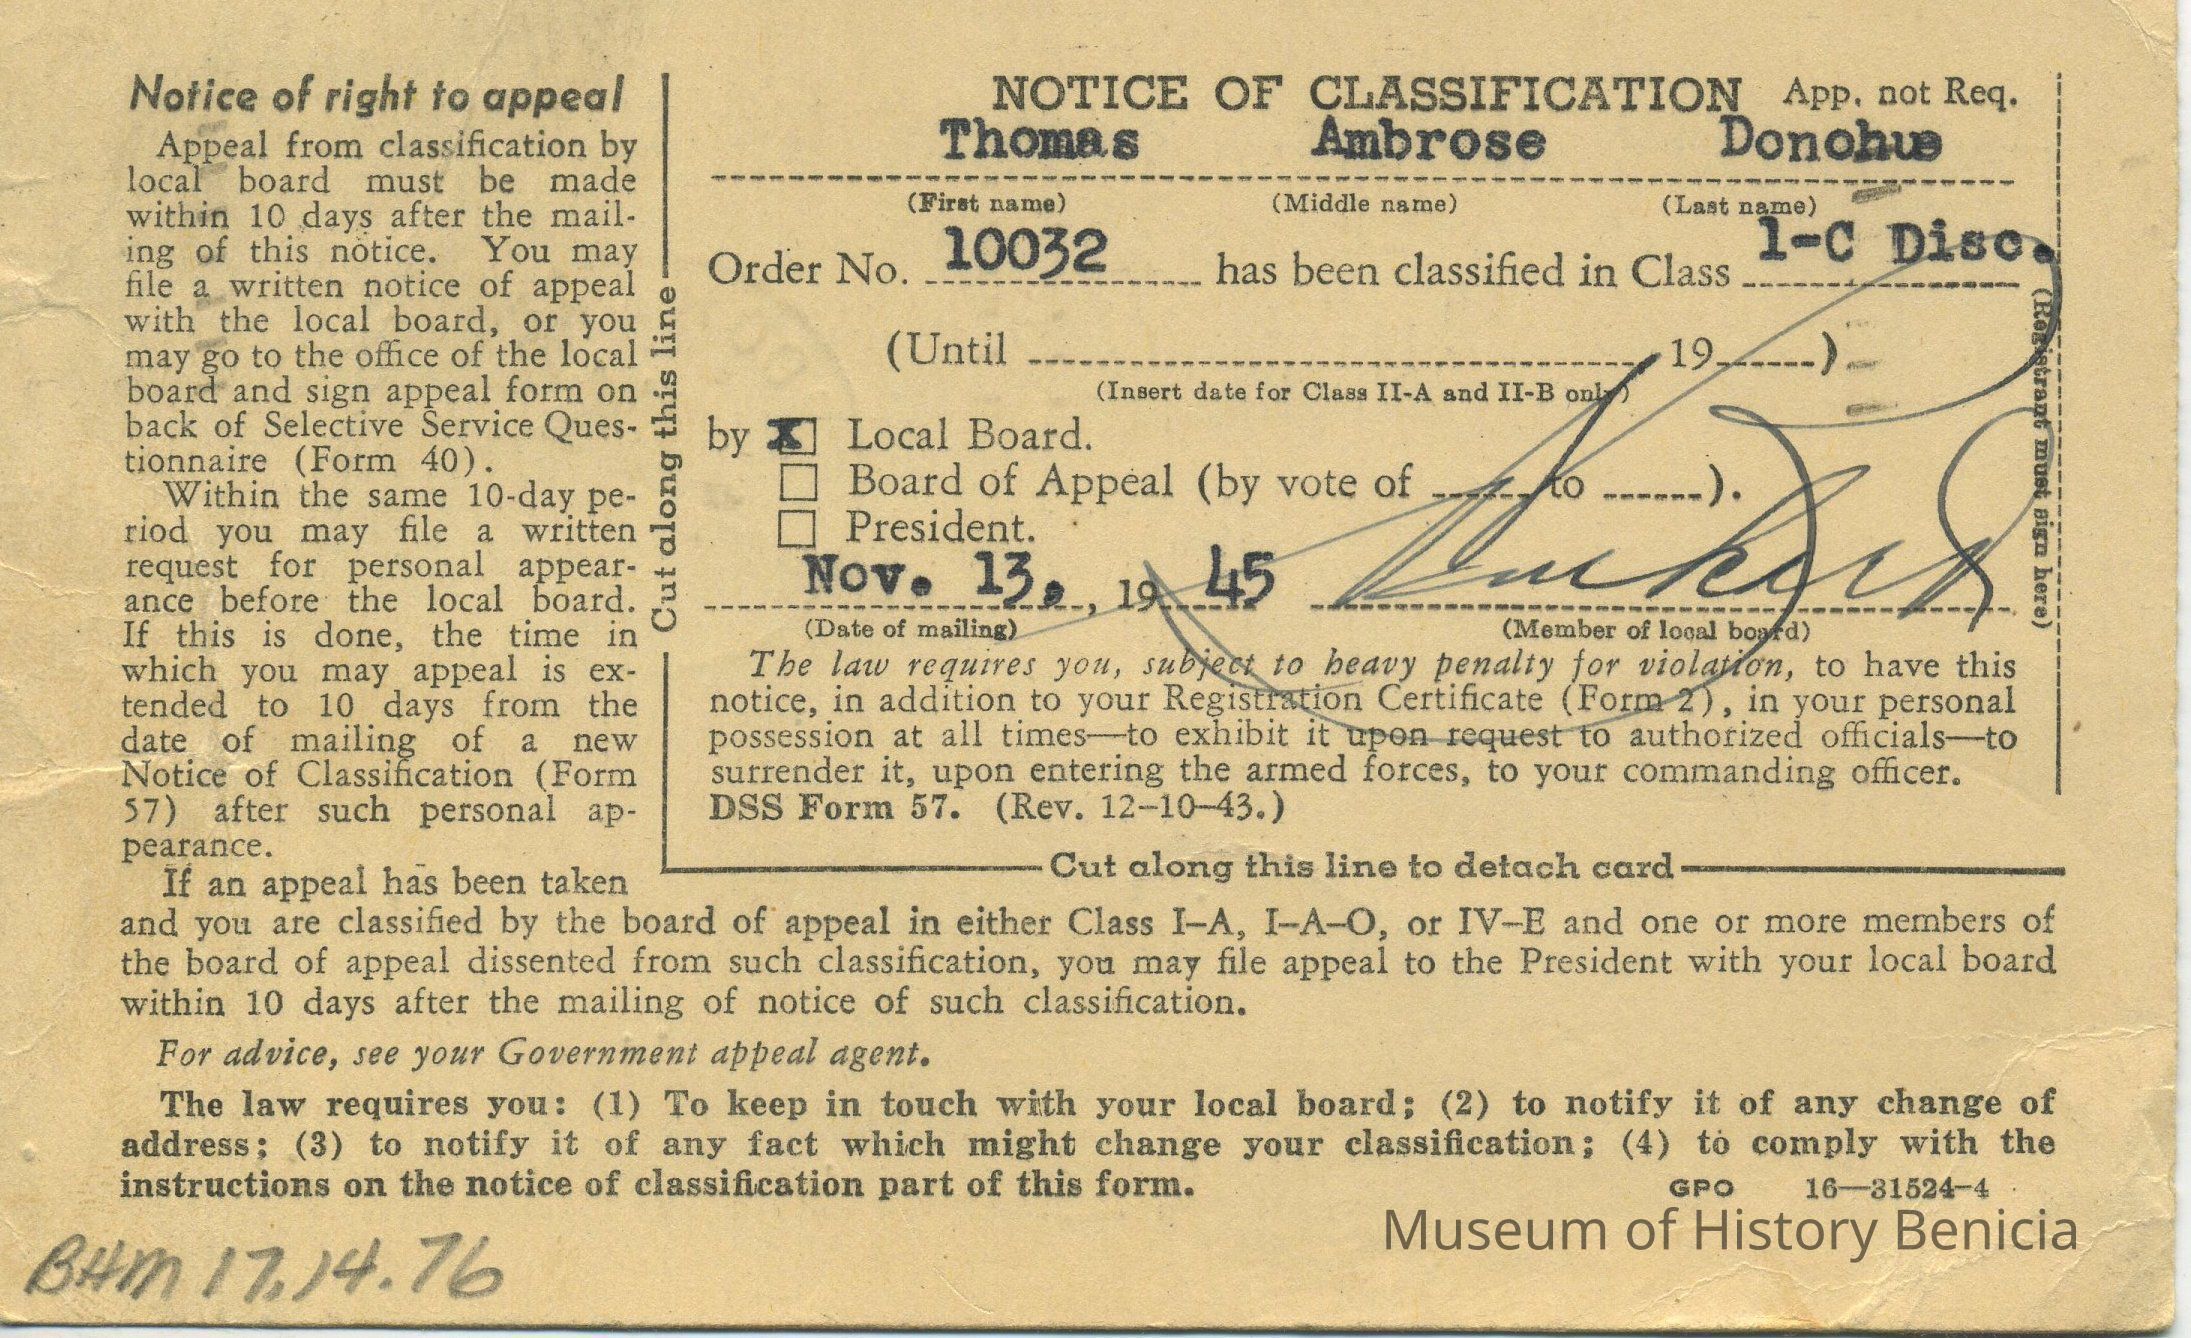 Notice of right to appeal
Appeal from classification by
local board must be made
within 10 days after the mail-
ing of this notice. You may
file a written notice of appeal
with the local board, or you
may go to the office of the local
board and sign appeal form on
back of Selective Service Ques-
tionnaire (Form 40).
Within the same 10-day pe-
riod you may file a written
request for personal appear-
ance before the local board.
If this is done, the time in
which you may appeal is ex-
tended to 10 days from the
date of mailing of a new
Notice of Classification (Form
57) after such personal ap-
pearance.
If an appeal has been taken
and you are classified by the board of appeal in either Class I–A, I–A–O, or IV–E and one or more members of
the board of appeal dissented from such classification, you may file appeal to the President with your local board
within 10 days after the mailing of notice of such classification.
For advice, see your Government appeal agent.
The law requires you: (1) To keep in touch with your local board; (2) to notify it of any change of
address; (3) to notify it of any fact which might change your classification; (4) to comply with the
instructions on the notice of classification part of this form.
GPO 16—31524-4
Cut along this line
NOTICE OF CLASSIFICATION App. not Req.
Thomas Ambrose Donohue
(First name) (Middle name) (Last name)
Order No. 10032 has been classified in Class 1-C Disc.
(Until 19 )
(Insert date for Class II-A and II-B only)
by X Local Board.
Board of Appeal (by vote of to ).
President.
Nov. 13, , 19 45
(Date of mailing) (Member of local board)
The law requires you, subject to heavy penalty for violation, to have this
notice, in addition to your Registration Certificate (Form 2), in your personal
possession at all times—to exhibit it upon request to authorized officials—to
surrender it, upon entering the armed forces, to your commanding officer.
DSS Form 57. (Rev. 12–10–43.)
(Registrant must sign here)
Cut along this line to detach card
BHM 17.14.76
Museum of History Benicia